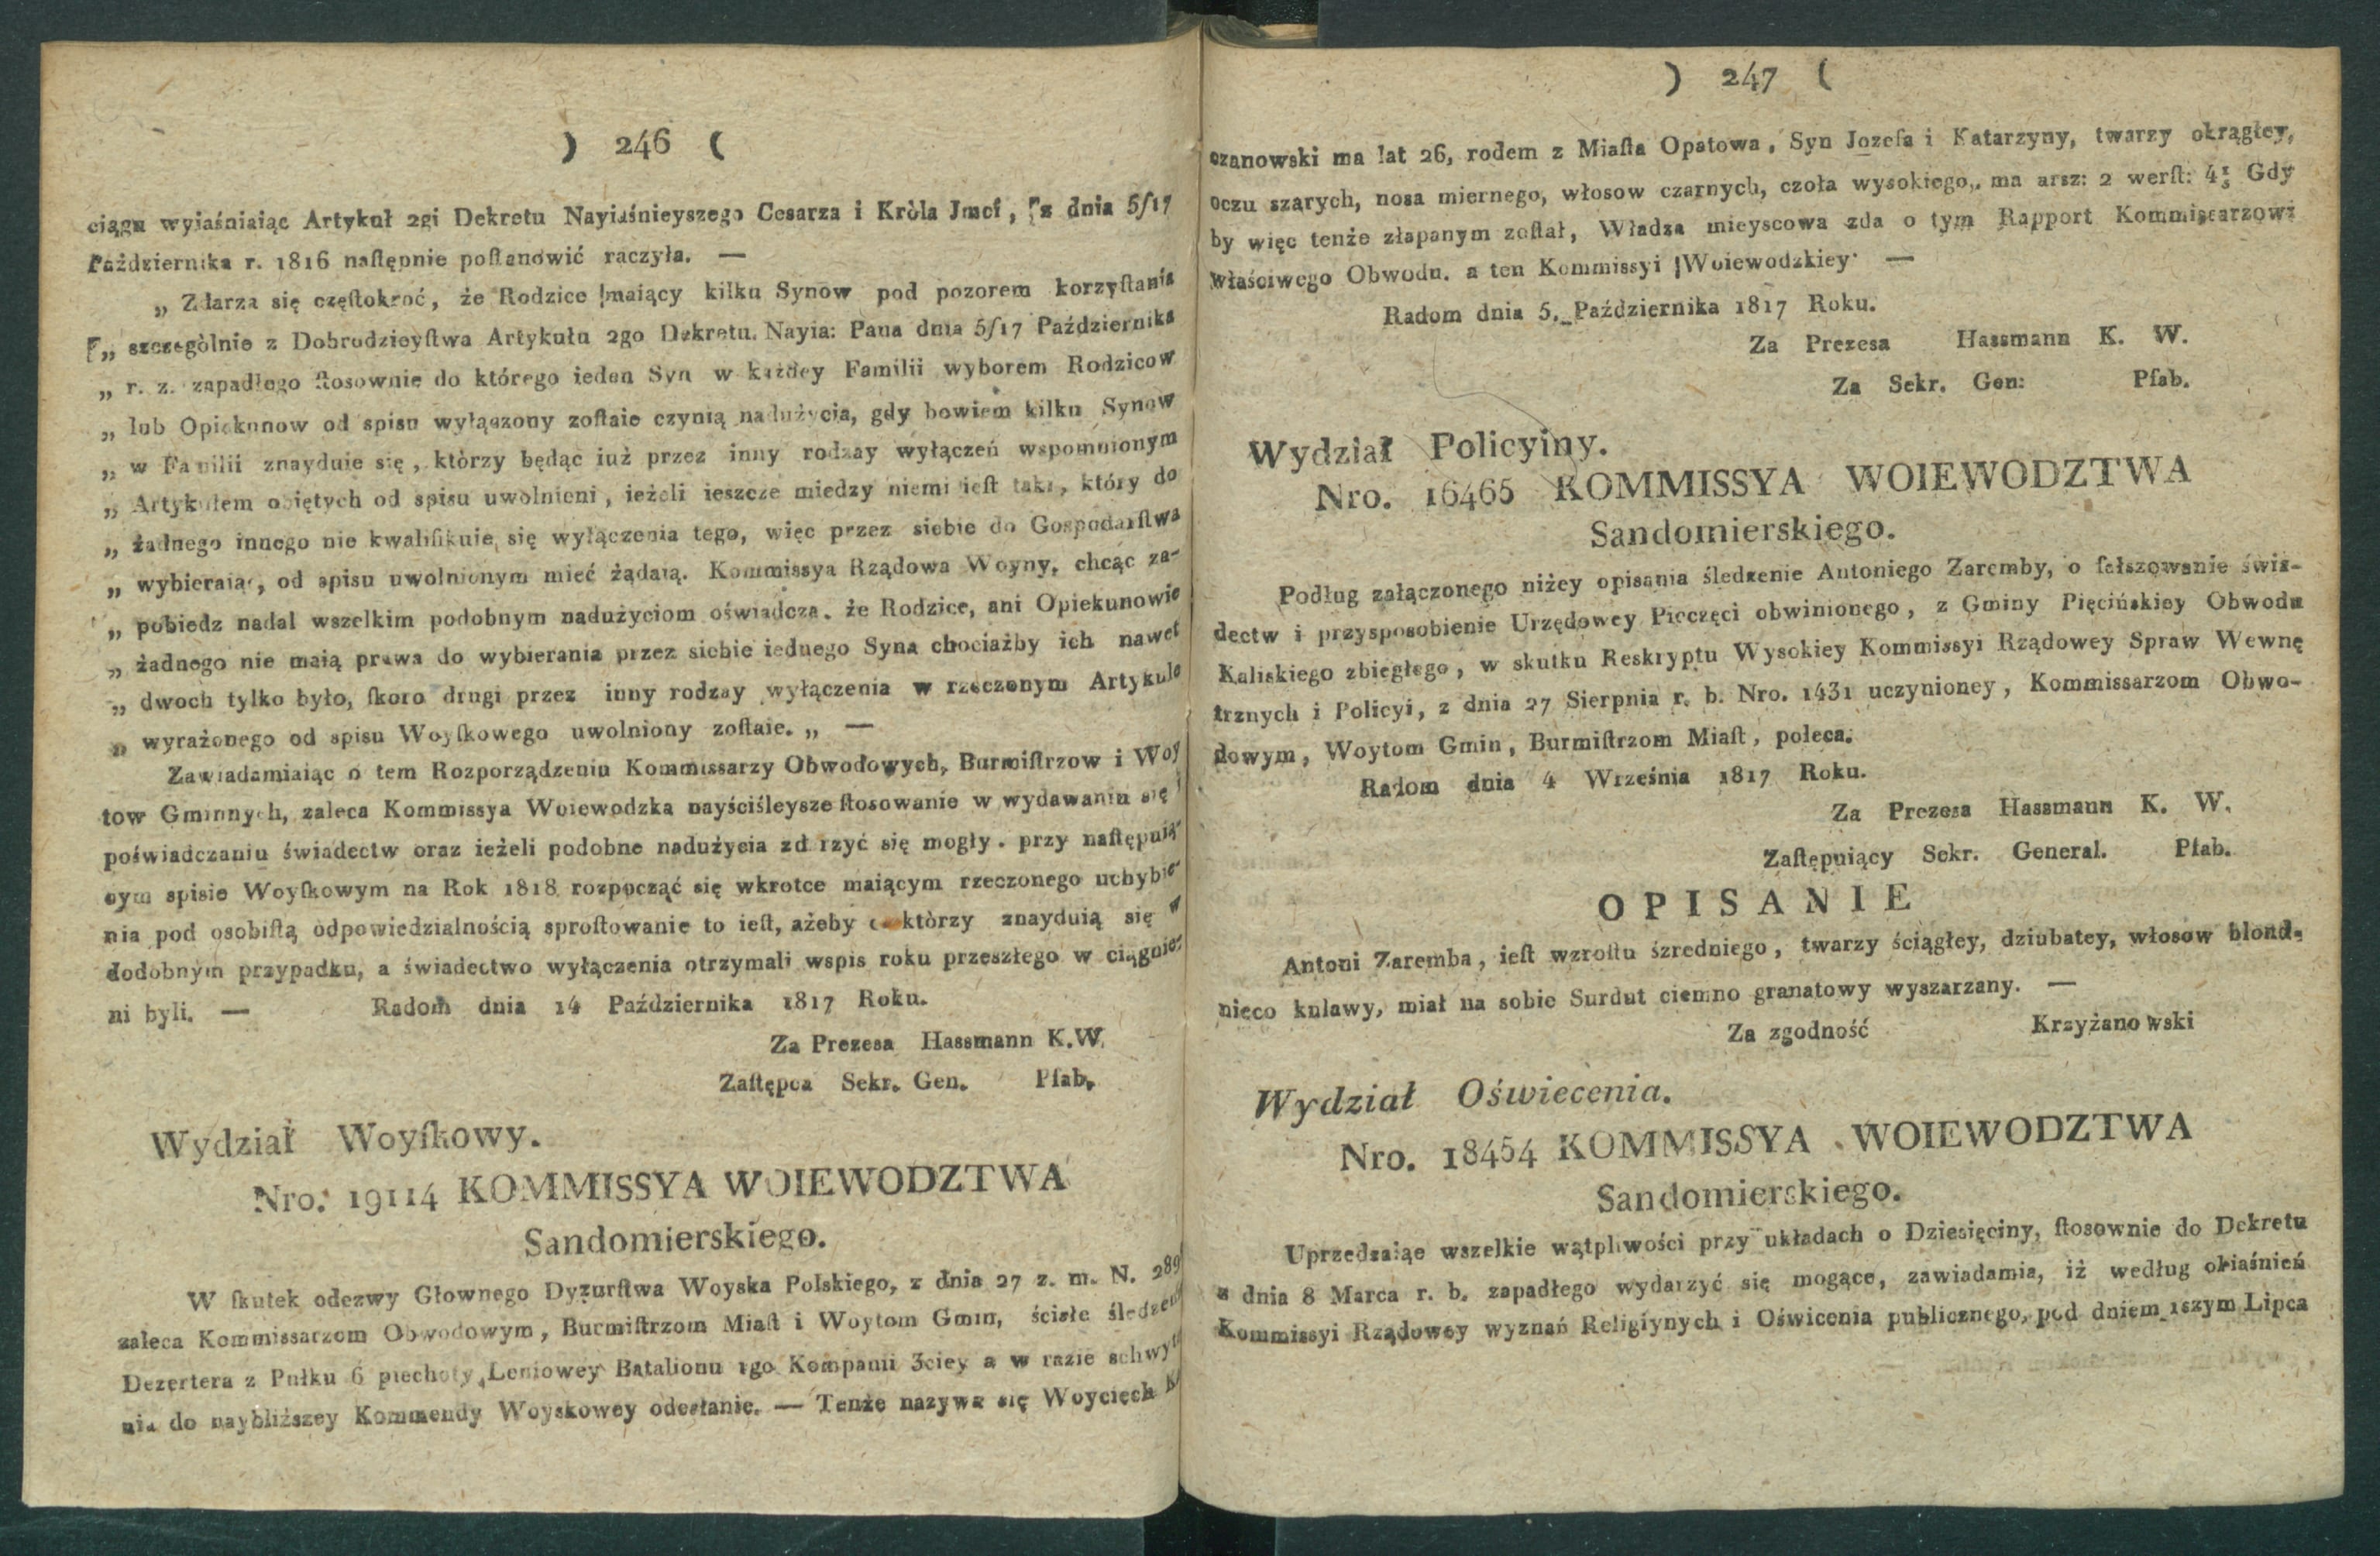 ) 246 (
ciągu wyiaśniaiąc Artykuł 2gi Dekretu Nayiaśnieyszego Cesarza i Kròla Jmci, z dnia 5/17
Października r. 1816 naſtępnie poſtanówić raczyła. —
„ Zdarza się częſtokroć, że Rodzice maiący kilku Synow pod pozorem korzyſtania
„ szczegòlnie z Dobrodzieyſtwa Artykułu 2go Dekretu. Nayia: Pana dnia 5/17 Października
„ r. z. zapadłego ſtosownie do którego ieden Syn w każdey Familii wyborem Rodzicow
„ lub Opiekunow od spisu wyłączony zoſtaie czynią nadużycia, gdy bowiem kilku Synow
„ w Familii znayduie się, którzy będąc iuż przez inny rodzay wyłączeń wspomnionym
„ Artykułem obiętych od spisu uwolnieni, ieżeli ieszcze miedzy niemi ieſt taki, który do
„ żadnego innego nie kwalifikuie się wyłączenia tego, więc przez siebie do Gospodarſtwa
„ wybieraiąc, od spisu uwolnionym mieć żądaią. Kommissya Rządowa Woyny, chcąc za-
„ pobiedz nadal wszelkim podobnym nadużyciom oświadcza. że Rodzice, ani Opiekunowie
„ żadnego nie maią prawa do wybierania przez siebie iednego Syna chociażby ich nawet
„ dwoch tylko było, ſkoro drugi przez inny rodzay wyłączenia w rzeczonym Artykule
„ wyrażonego od spisu Woyſkowego uwolniony zoſtaie. „ —
Zawiadamiaiąc o tem Rozporządzeniu Kommissarzy Obwodowych, Burmiſtrzow i Woy
tow Gminnych, zaleca Kommissya Woiewodzka nayściśleysze ſtosowanie w wydawaniu się
poświadczaniu świadectw oraz ieżeli podobne nadużycia zdarzyć się mogły. przy naſtępuią-
cym spisie Woyſkowym na Rok 1818 rozpocząć się wkrotce maiącym rzeczonego uchybie-
nia pod osobiſtą odpowiedzialnością sproſtowanie to ieſt, ażeby ktòrzy znayduią się w
dodobnym przypadku, a świadectwo wyłączenia otrzymali wspis roku przeszłego w ciągnie-
ni byli. — Radom dnia 14 Października 1817 Roku.
Za Prezesa Hassmann K.W.
Zaſtępca Sekr. Gen. Pſab.
Wydział Woyſkowy.
Nro. 19114 KOMMISSYA WOIEWODZTWA
Sandomierskiego.
W ſkutek odezwy Głownego Dyżurſtwa Woyska Polskiego, z dnia 27 z. m. N. 289
zaleca Kommissarzom Obwodowym, Burmiſtrzom Miaſt i Woytom Gmin, ścisłe śledzeni
Dezertera z Pułku 6 piechoty Leniowey Batalionu 1go Kompanii 3ciey a w razie schwyt
nia do naybliższey Kommendy Woyskowey odesłanie. — Tenże nazywa się Woyciech
) 247 (
czanowski ma lat 26, rodem z Miaſta Opatowa, Syn Jozefa i Katarzyny, twarzy okrągłey,
oczu szarych, nosa miernego, włosow czarnych, czoła wysokiego, ma arsz: 2 werſt: 4 1/3 Gdy
by więc tenże złapanym zoſtał, Władza mieyscowa zda o tym Rapport Kommissarzowi
właściwego Obwodu. a ten Kommissyi Woiewodzkiey —
Radom dnia 5. Października 1817 Roku.
Za Prezesa Hassmann K. W.
Za Sekr. Gen: Pſab.
Wydział Policyiny.
Nro. 16465 KOMMISSYA WOIEWODZTWA
Sandomierskiego.
Podług załączonego niżey opisania śledzenie Antoniego Zaremby, o fałszowanie świa-
dectw i przysposobienie Urzędowey Pieczęci obwinionego, z Gminy Pięcińskiey Obwodu
Kaliskiego zbiegłego, w skutku Reskryptu Wysokiey Kommissyi Rządowey Spraw Wewnę
trznych i Policyi, z dnia 27 Sierpnia r. b. Nro. 1431 uczynioney, Kommissarzom Obwo-
dowym, Woytom Gmin, Burmiſtrzom Miaſt, poleca.
Radom dnia 4 Września 1817 Roku.
Za Prezesa Hassmann K. W.
Zaſtępuiący Sekr. General. Pſab.
OPISANIE
Antoni Zaremba, ieſt wzroſtu śzredniego, twarzy ściągłey, dziubatey, włosow blond,
nieco kulawy, miał na sobie Surdut ciemno granatowy wyszarzany. —
Za zgodność Krzyżanowski
Wydział Oświecenia.
Nro. 18454 KOMMISSYA WOIEWODZTWA
Sandomierskiego.
Uprzedzaiąc wszelkie wątpliwości przy układach o Dziesięciny, ſtosownie do Dekretu
z dnia 8 Marca r. b. zapadłego wydarzyć się mogące, zawiadamia, iż według obiaśnień
Kommissyi Rządowey wyznań Religiynych i Oświcenia publicznego, pod dniem 1szym Lipca